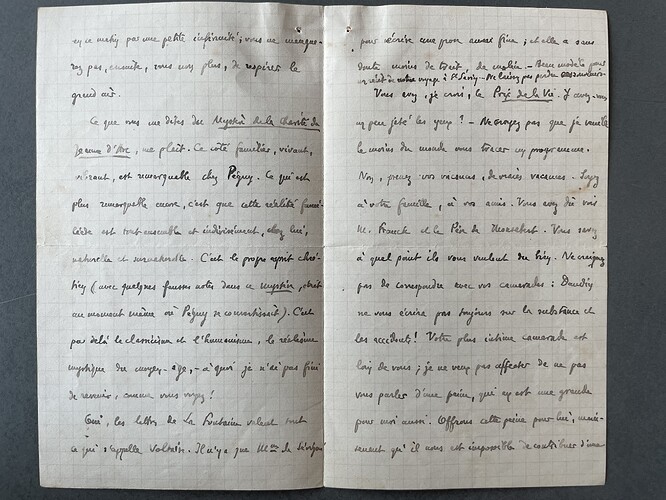 ce matin par une petite infirmité ; vous ne manque-
rez pas, ensuite, vous non plus, de respirer le
grand air.
Ce que vous me dites du Mystère de la Charité de
Jeanne d'Arc, me plaît. Ce côté familier, vivant,
vibrant, est remarquable chez Péguy. Ce qui est
plus remarquable encore, c'est que cette réalité fami-
lière est tout ensemble et indivisément, chez lui,
naturelle et surnaturelle. C'est le propre esprit chré-
tien (avec quelques fausses notes dans ce mystère, écrit
au moment même où Péguy se convertissait). C'est
par delà le classicisme et l'humanisme, le réalisme
mystique du moyen-age, - à quoi je n'ai pas fini
de revenir, comme vous voyez !
Oui, les lettres de La Fontaine valent tout
ce qui s'appelle Voltaire. Il n'y a que Mme de Sévigné
pour écrire une prose aussi fine ; et elle a sans
doute moins de trait, de malin. - Beau modèle pour
un récit de notre voyage à St - Ne laissez pas perdre ces
Vous avez, je crois, le Pozé de la Vie. Y avez-vous
un peu jeté les yeux ? - Ne croyez pas que je veuille
le moins du monde vous tracer un programme.
Non, prenez vos vacances, de vraies vacances. Soyez
à votre famille, à vos amis. Vous avez dû voir
M. Franck et le Père de Montclost. Vous savez
à quel point ils vous veulent du bien. Ne craignez
pas de correspondre avec vos camarades : Dandin
ne vous écrira pas toujours sur la substance et
les accidents ! Votre plus intime camarade est
loin de vous ; je ne veux pas affecter de ne pas
vous parler d'une peine, qui en est une grande
pour moi aussi. Offrons cette peine pour lui, main-
tenant qu'il nous est impossible de contribuer d'une